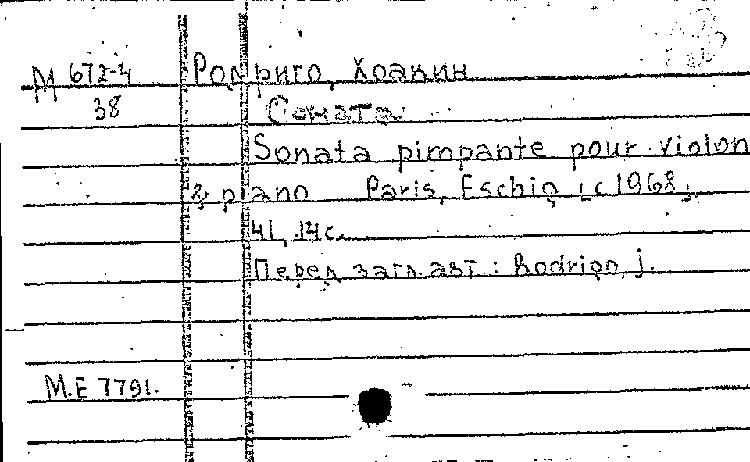 М 672-4 Родриго, Хоакин
38 Соната
Sonata pimpante pour violon
& piano Paris, Eschig, [c 1968],
41, 14 с.
Перед загл. авт : Rodrigo, j.
М.Е 7791.